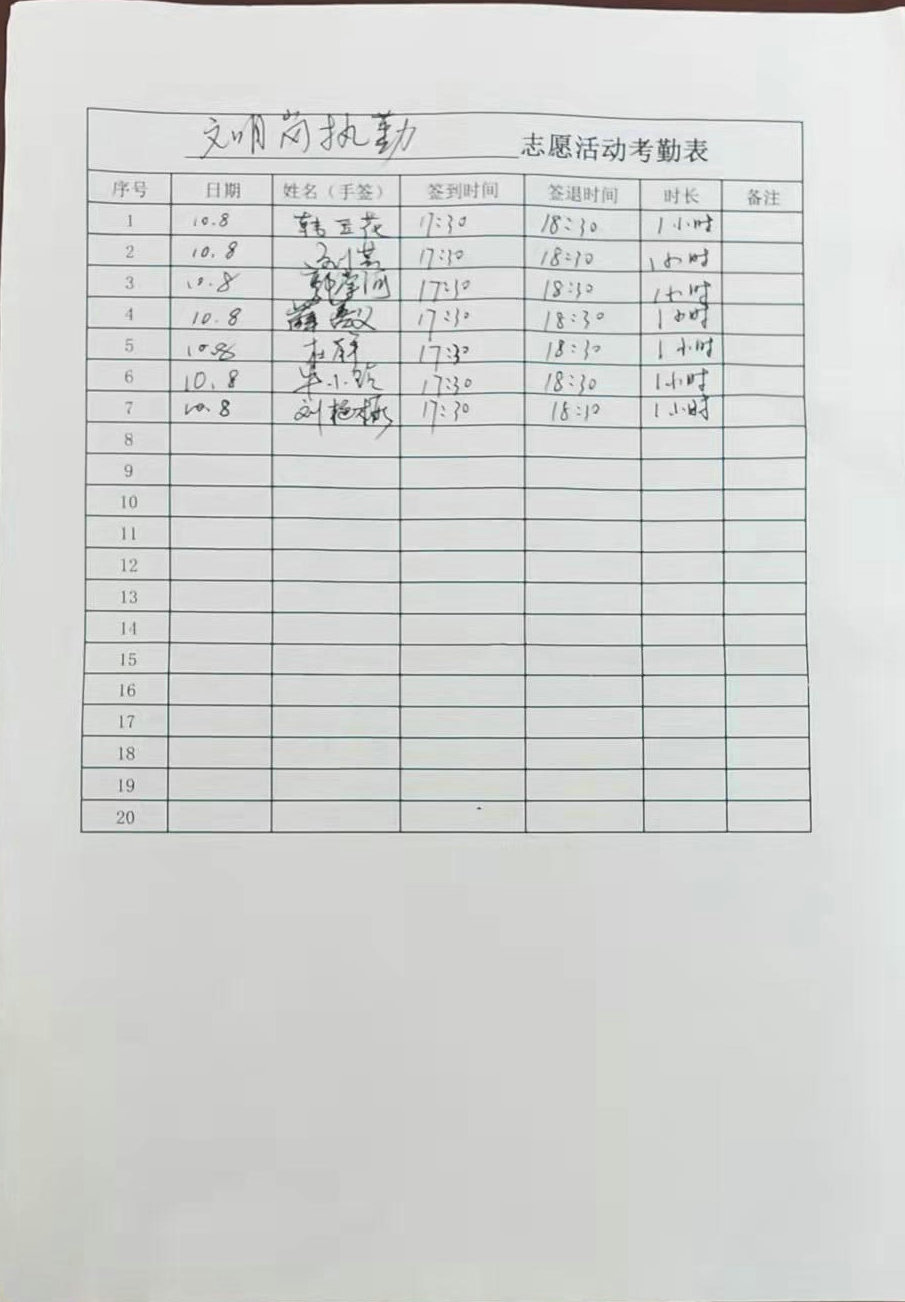 文明岗执勤 志愿活动考勤表
序号 日期 姓名（手签） 签到时间 签退时间 时长 备注
1 10.8 韩玉花 17:30 18:30 1小时
2 10.8 刘 17:30 18:30 1小时
3 10.8 17:30 18:30 1小时
4 10.8 薛 17:30 18:30 1小时
5 10.8 杜 17:30 18:30 1小时
6 10.8 小 17:30 18:30 1小时
7 10.8 刘艳 17:30 18:30 1小时
8
9
10
11
12
13
14
15
16
17
18
19
20